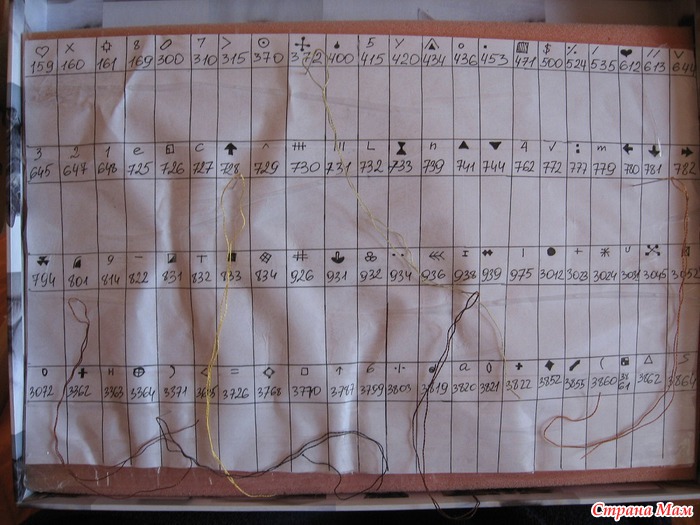 159 160 161 169 300 310 315 370 372 400 415 420 434 436 453 471 500 524 535 612 613 644
3 2 1 e C L n 4 m
645 647 648 725 726 727 728 729 730 731 732 733 739 741 744 762 772 777 779 780 781 782
794 801 814 822 831 832 833 834 926 931 932 934 936 938 939 975 3012 3023 3024 3031 3045 3052
3072 3362 3363 3364 3371 3726 3768 3770 3787 3799 3803 3819 3820 3821 3822 3852 3855 3860 3861 3862 3864
Страна Мам